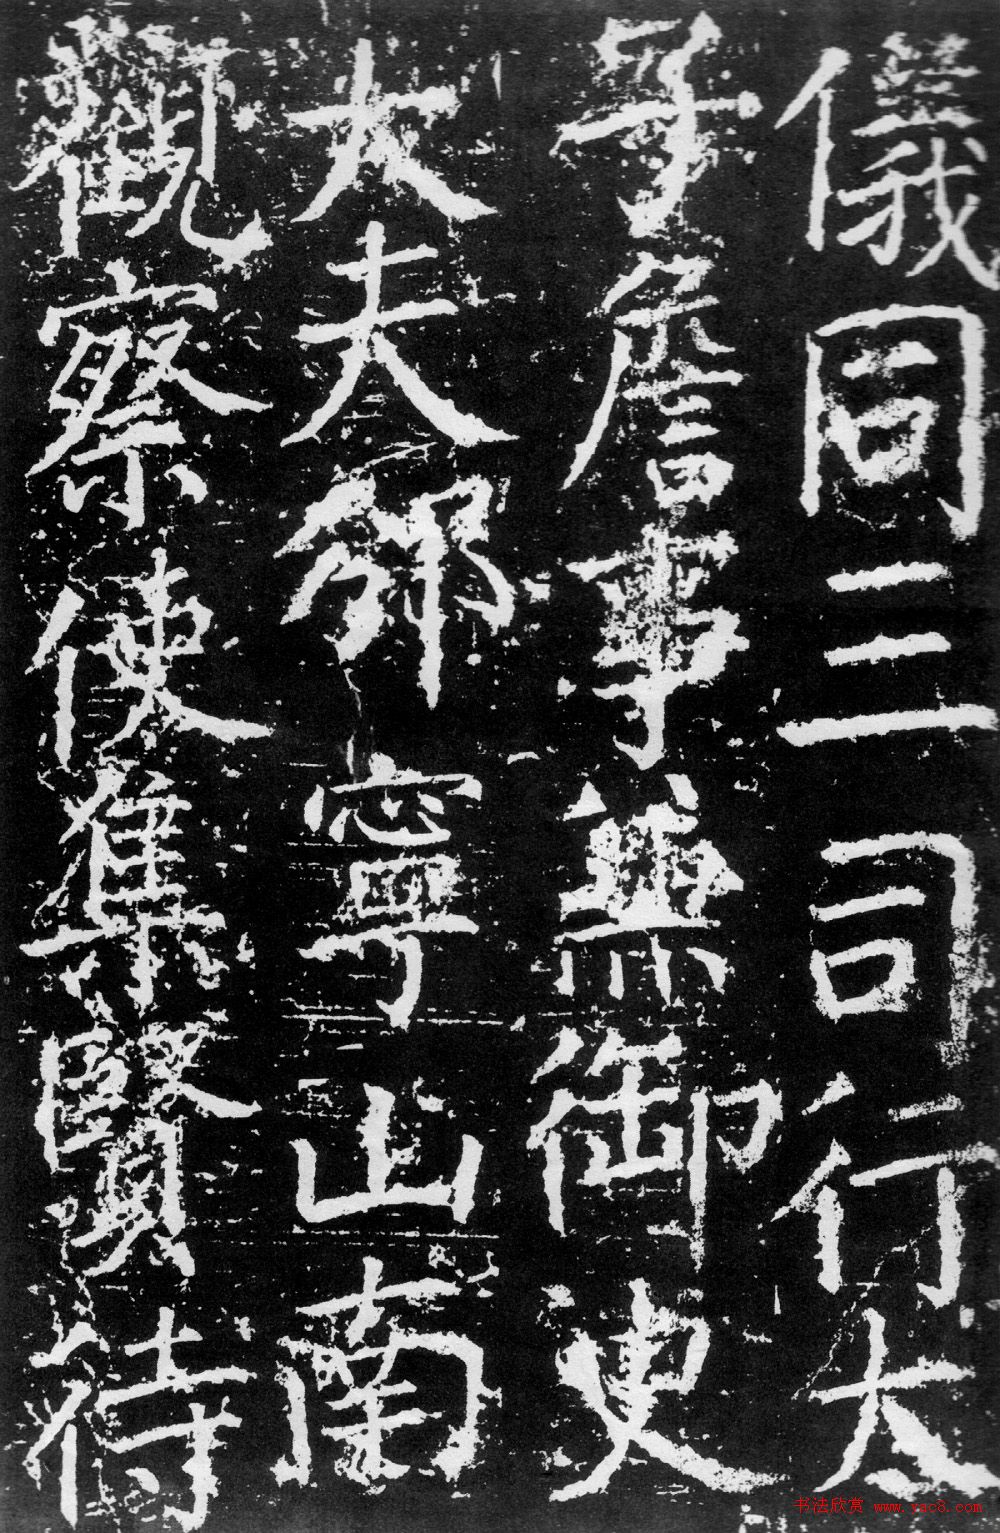 儀同三司行太
子詹事兼御史
大夫邠寧山南
觀察使集賢待
书法欣赏 www.yac8.com